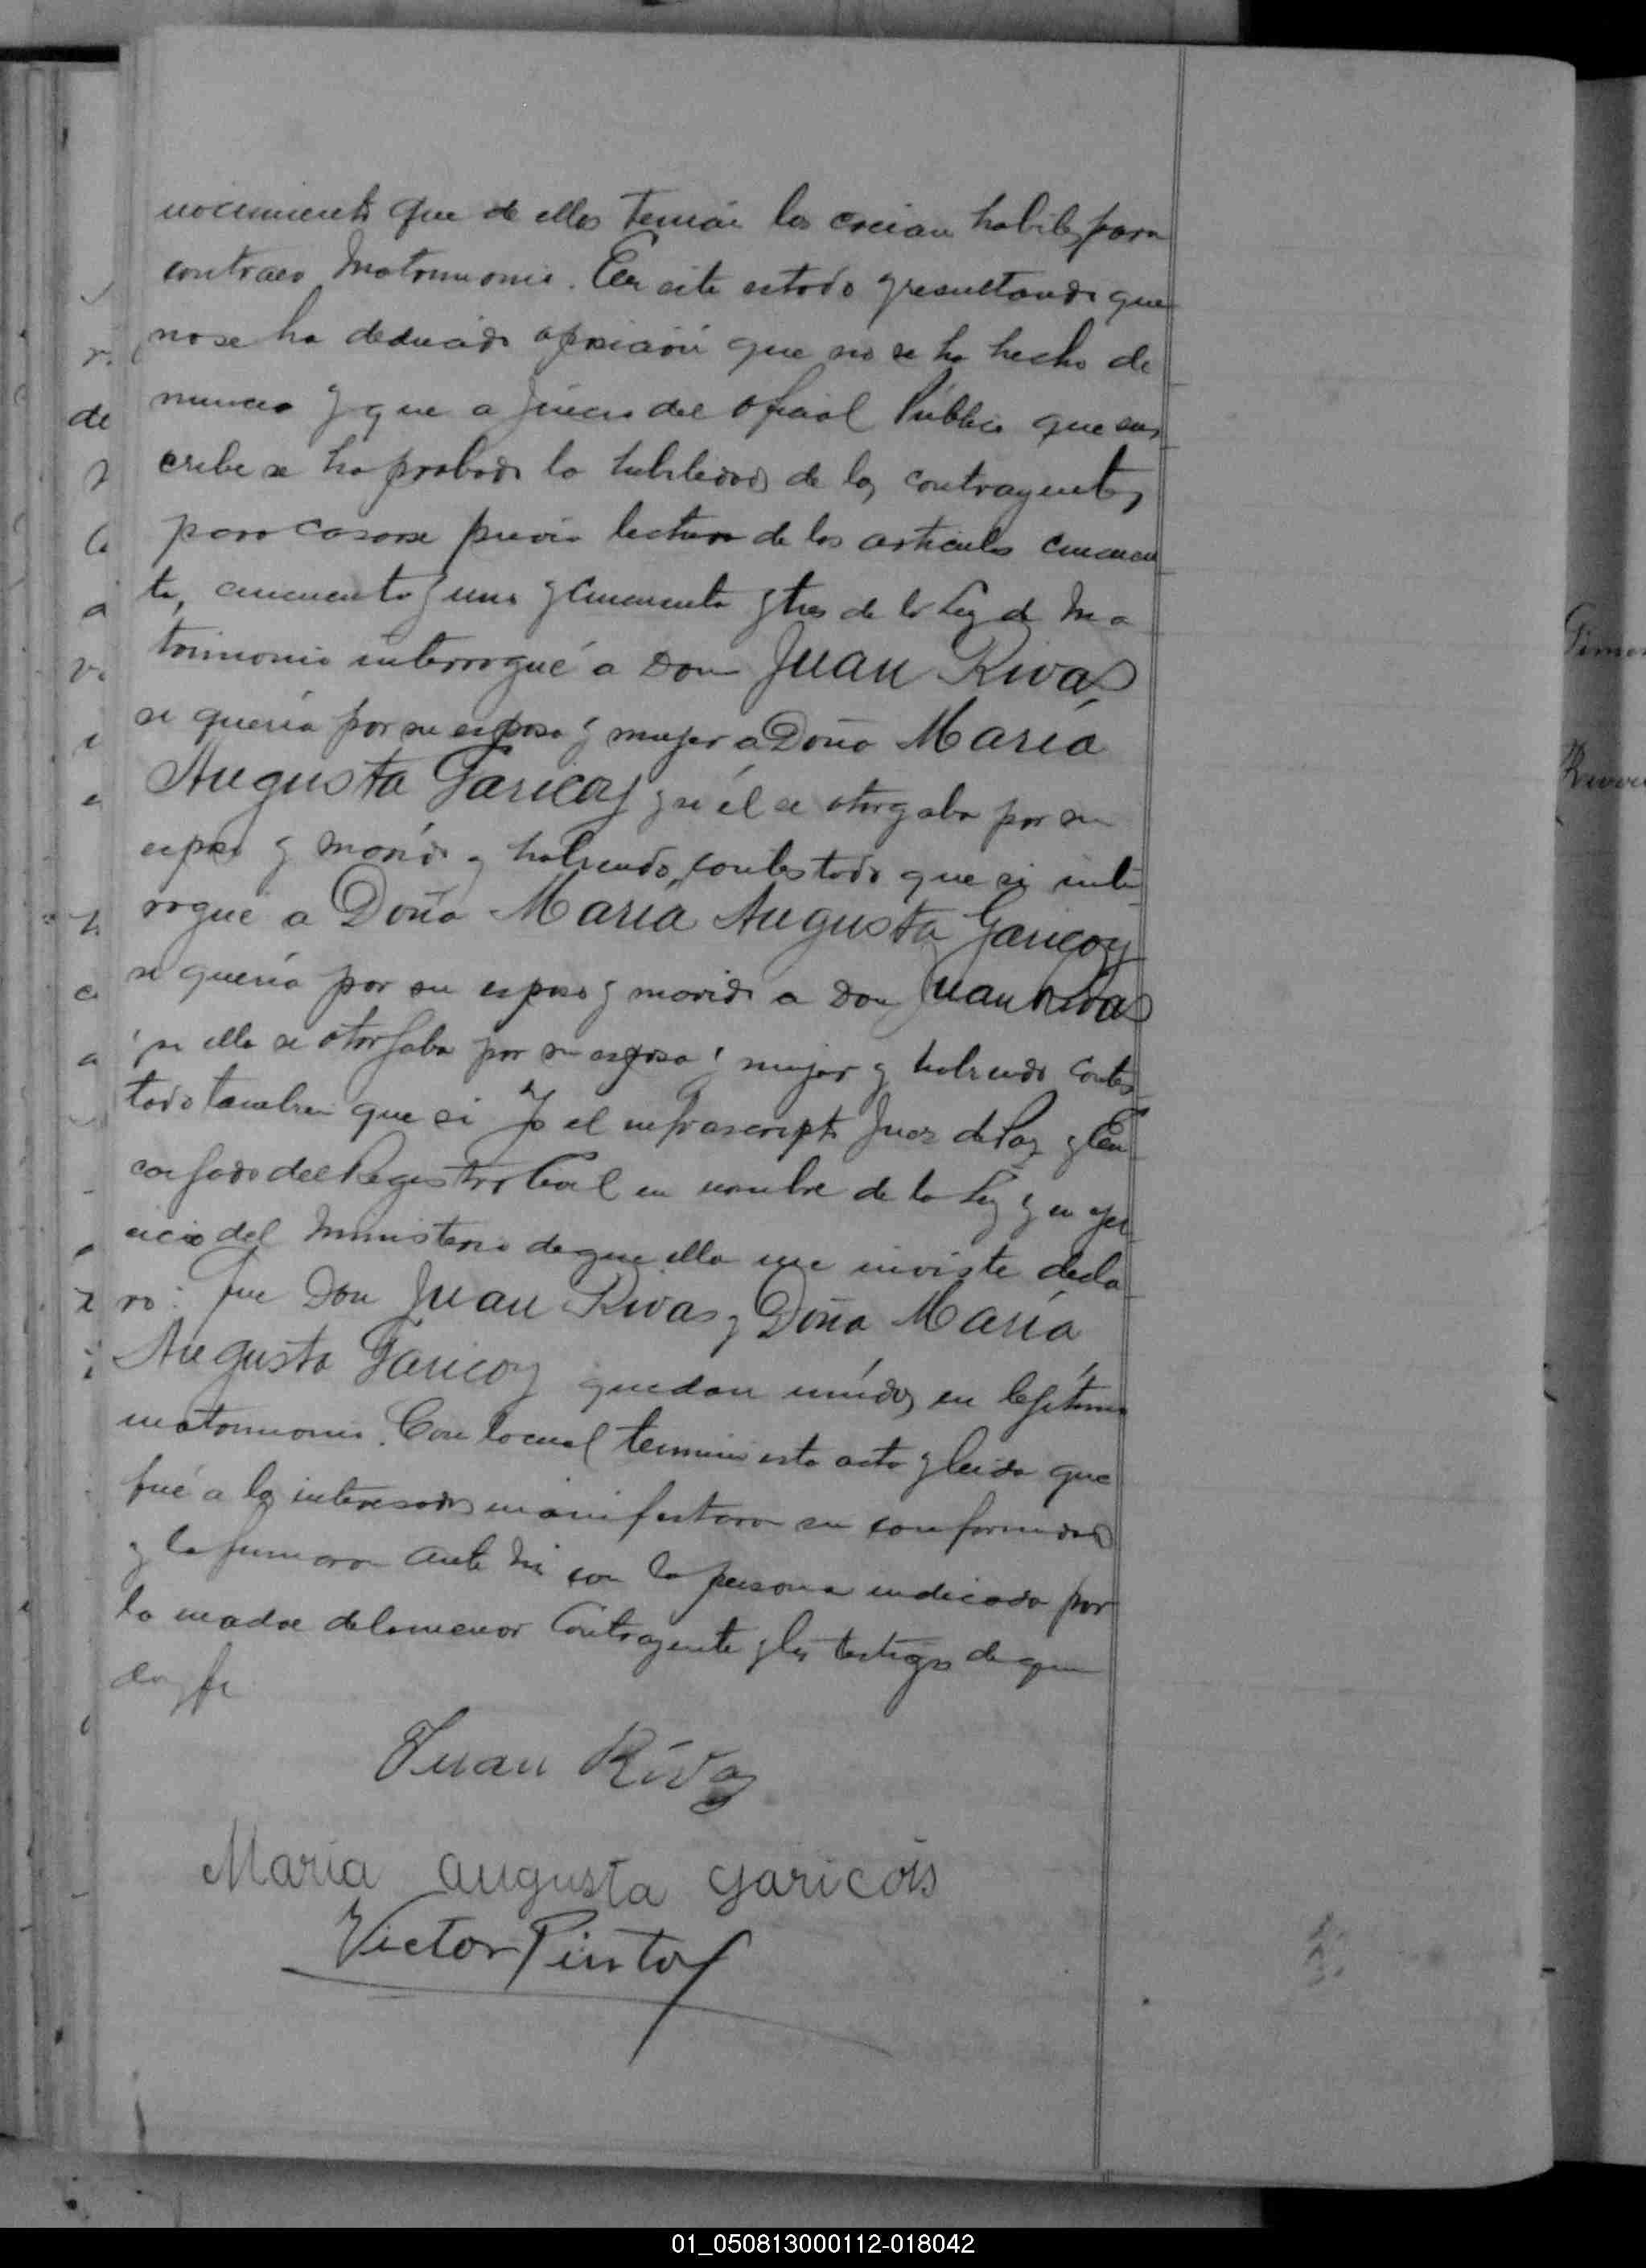 nocimiento que de ellos tenian los creian habiles para
contraer Matrimonio. En este estado y resultando que
no se ha deducido oposición que no se ha hecho de
nuncia y que a juicio del Oficial Público que sus
cribe se ha probado la habilidad de los contrayentes
para casarse previa lectura de los articulos cincuen
ta, cincuenta y uno y cincuenta y tres de la Ley de Ma
trimonio interrogué a Don Juan Rivas
si quería por su esposa y mujer a Doña María
Augusta Garicoy y si él se otorgaba por su
esposo y marido y habiendo contestado que si inte
rrogué a Doña María Augusta Garicoy
si quería por su esposo y marido a Don Juan Rivas
y si ella se otorgaba por su esposa y mujer y habiendo contes
tado tambien que si Yo el infrascripto Juez de Paz y En
cargado del Registro Civil en nombre de la Ley y en ejer
cicio del Ministerio de que ella me inviste decla
ro: Que Don Juan Rivas y Doña María
Augusta Garicoy quedan unídos en legítimo
matrimonio. Con lo cual termino esta acta y leida que
fué a los interesados manifestaron su conformidad
y la firmaron ante mi con la persona indicada por
la madre de la menor Contrayente y los testigos de que
doy fe
Juan Rívas
Maria augusta garicois
Victor Pinto
Rivas
01_050813000112-018042